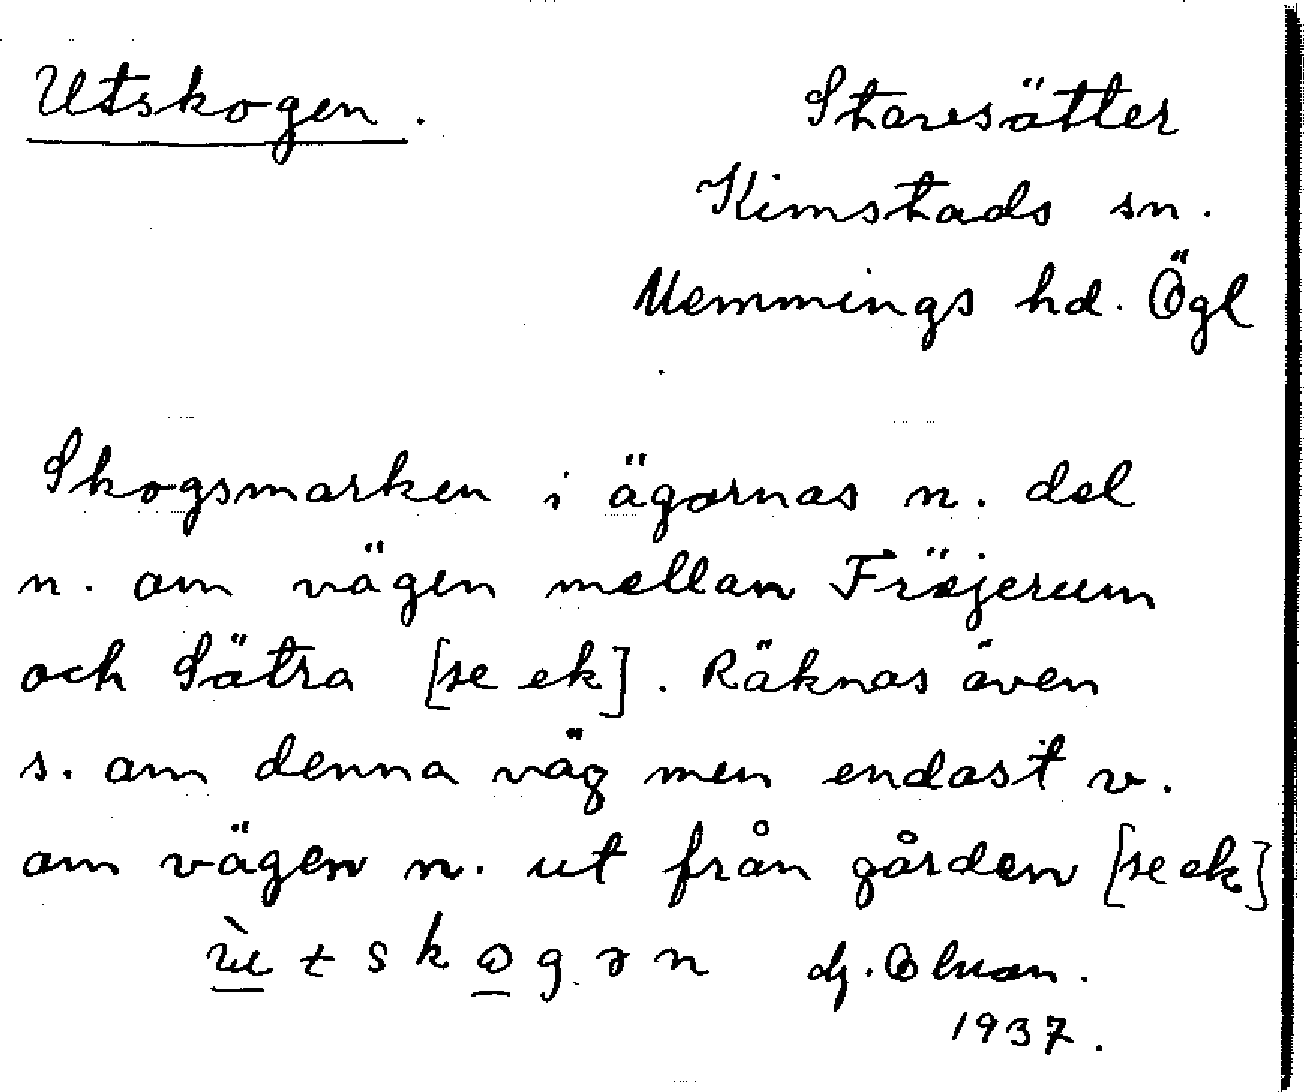 Utskogen.
Staresätter
Kimstads sn.
Memmings hd. Ögl
Skogsmarken i ägornas n. del
n. om vägen mellan Fröjerum
och Sätra [se ek]. Räknas även
s. om denna väg men endast v.
om vägen n. ut från gården [se ek]
ùtskogən
1937.